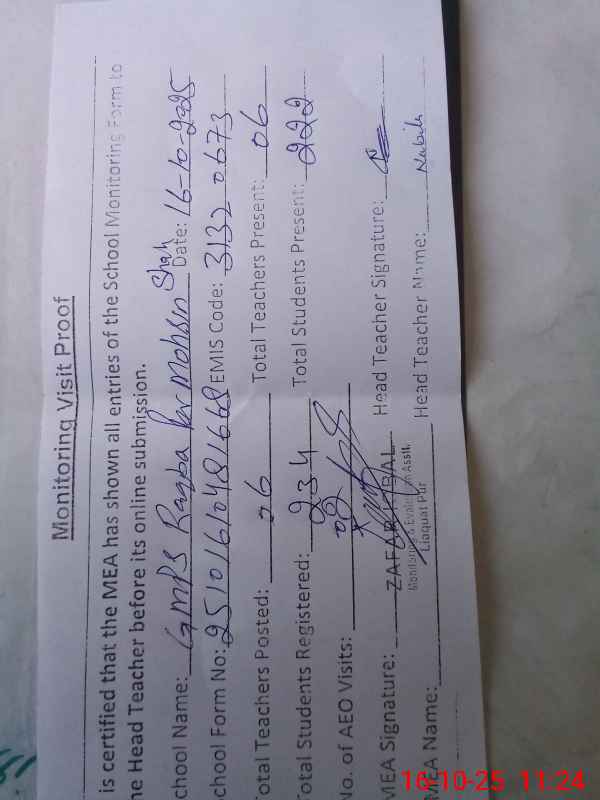 Monitoring Visit Proof
is certified that the MEA has shown all entries of the School Monitoring Form to
he Head Teacher before its online submission.
chool Name: GMPS Razba Per Mohsin Shah Date: 16-10-2025
chool Form No: 25101610481668 EMIS Code: 3132 0673
otal Teachers Posted: 06 Total Teachers Present: 06
otal Students Registered: 234 Total Students Present: 222
No. of AEO Visits: 02
MEA Signature: ZAFAR IQBAL Head Teacher Signature:
Monitoring & Evaluation Assit.
Liaquat Pur
MEA Name: Head Teacher Name: Nabila
16-10-25 11:24